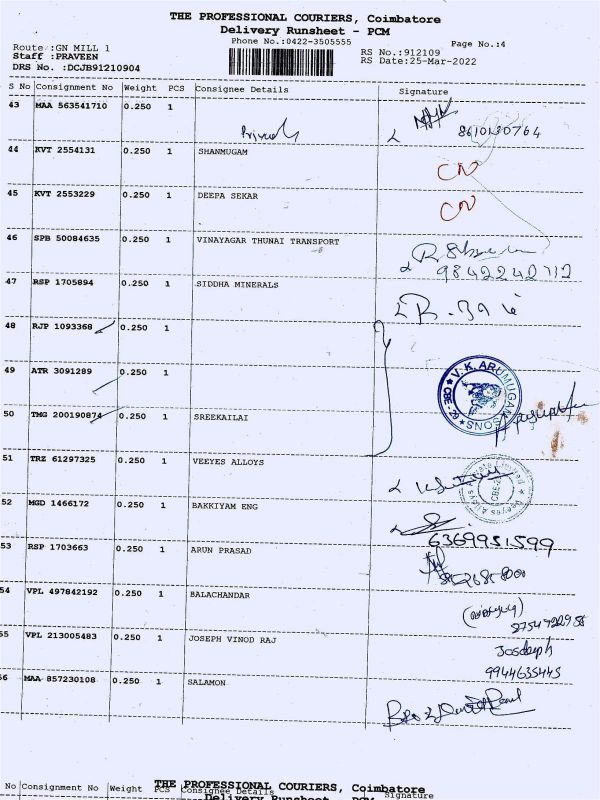 THE PROFESSIONAL COURIERS, Coimbatore
Delivery Runsheet - PCM
Phone No.:0422-3505555
Page No.:4
Route :GN MILL 1
Staff :PRAVEEN
DRS No. :DCJB91210904
RS No.:912109
RS Date:25-Mar-2022
S No Consignment No Weight PCS Consignee Details Signature
43 MAA 563541710 0.250 1
44 KVT 2554131 0.250 1 SHANMUGAM CN
45 KVT 2553229 0.250 1 DEEPA SEKAR CN
46 SPB 50084635 0.250 1 VINAYAGAR THUNAI TRANSPORT
9842242712
47 RSP 1705894 0.250 1 SIDDHA MINERALS
48 RJP 1093368 0.250 1
49 ATR 3091289 0.250 1
V.K.ARUMUGAM SONS
CBE-29
50 TMG 200190874 0.250 1 SREEKAILAI
51 TRZ 61297325 0.250 1 VEEYES ALLOYS
52 MGD 1466172 0.250 1 BAKKIYAM ENG
6369951599
53 RSP 1703663 0.250 1 ARUN PRASAD
54 VPL 497842192 0.250 1 BALACHANDAR
55 VPL 213005483 0.250 1 JOSEPH VINOD RAJ
9944635445
56 MAA 857230108 0.250 1 SALAMON
THE PROFESSIONAL COURIERS, Coimbatore
No Consignment No Weight PCS Consignee Details Signature
Delivery Runsheet - PCM